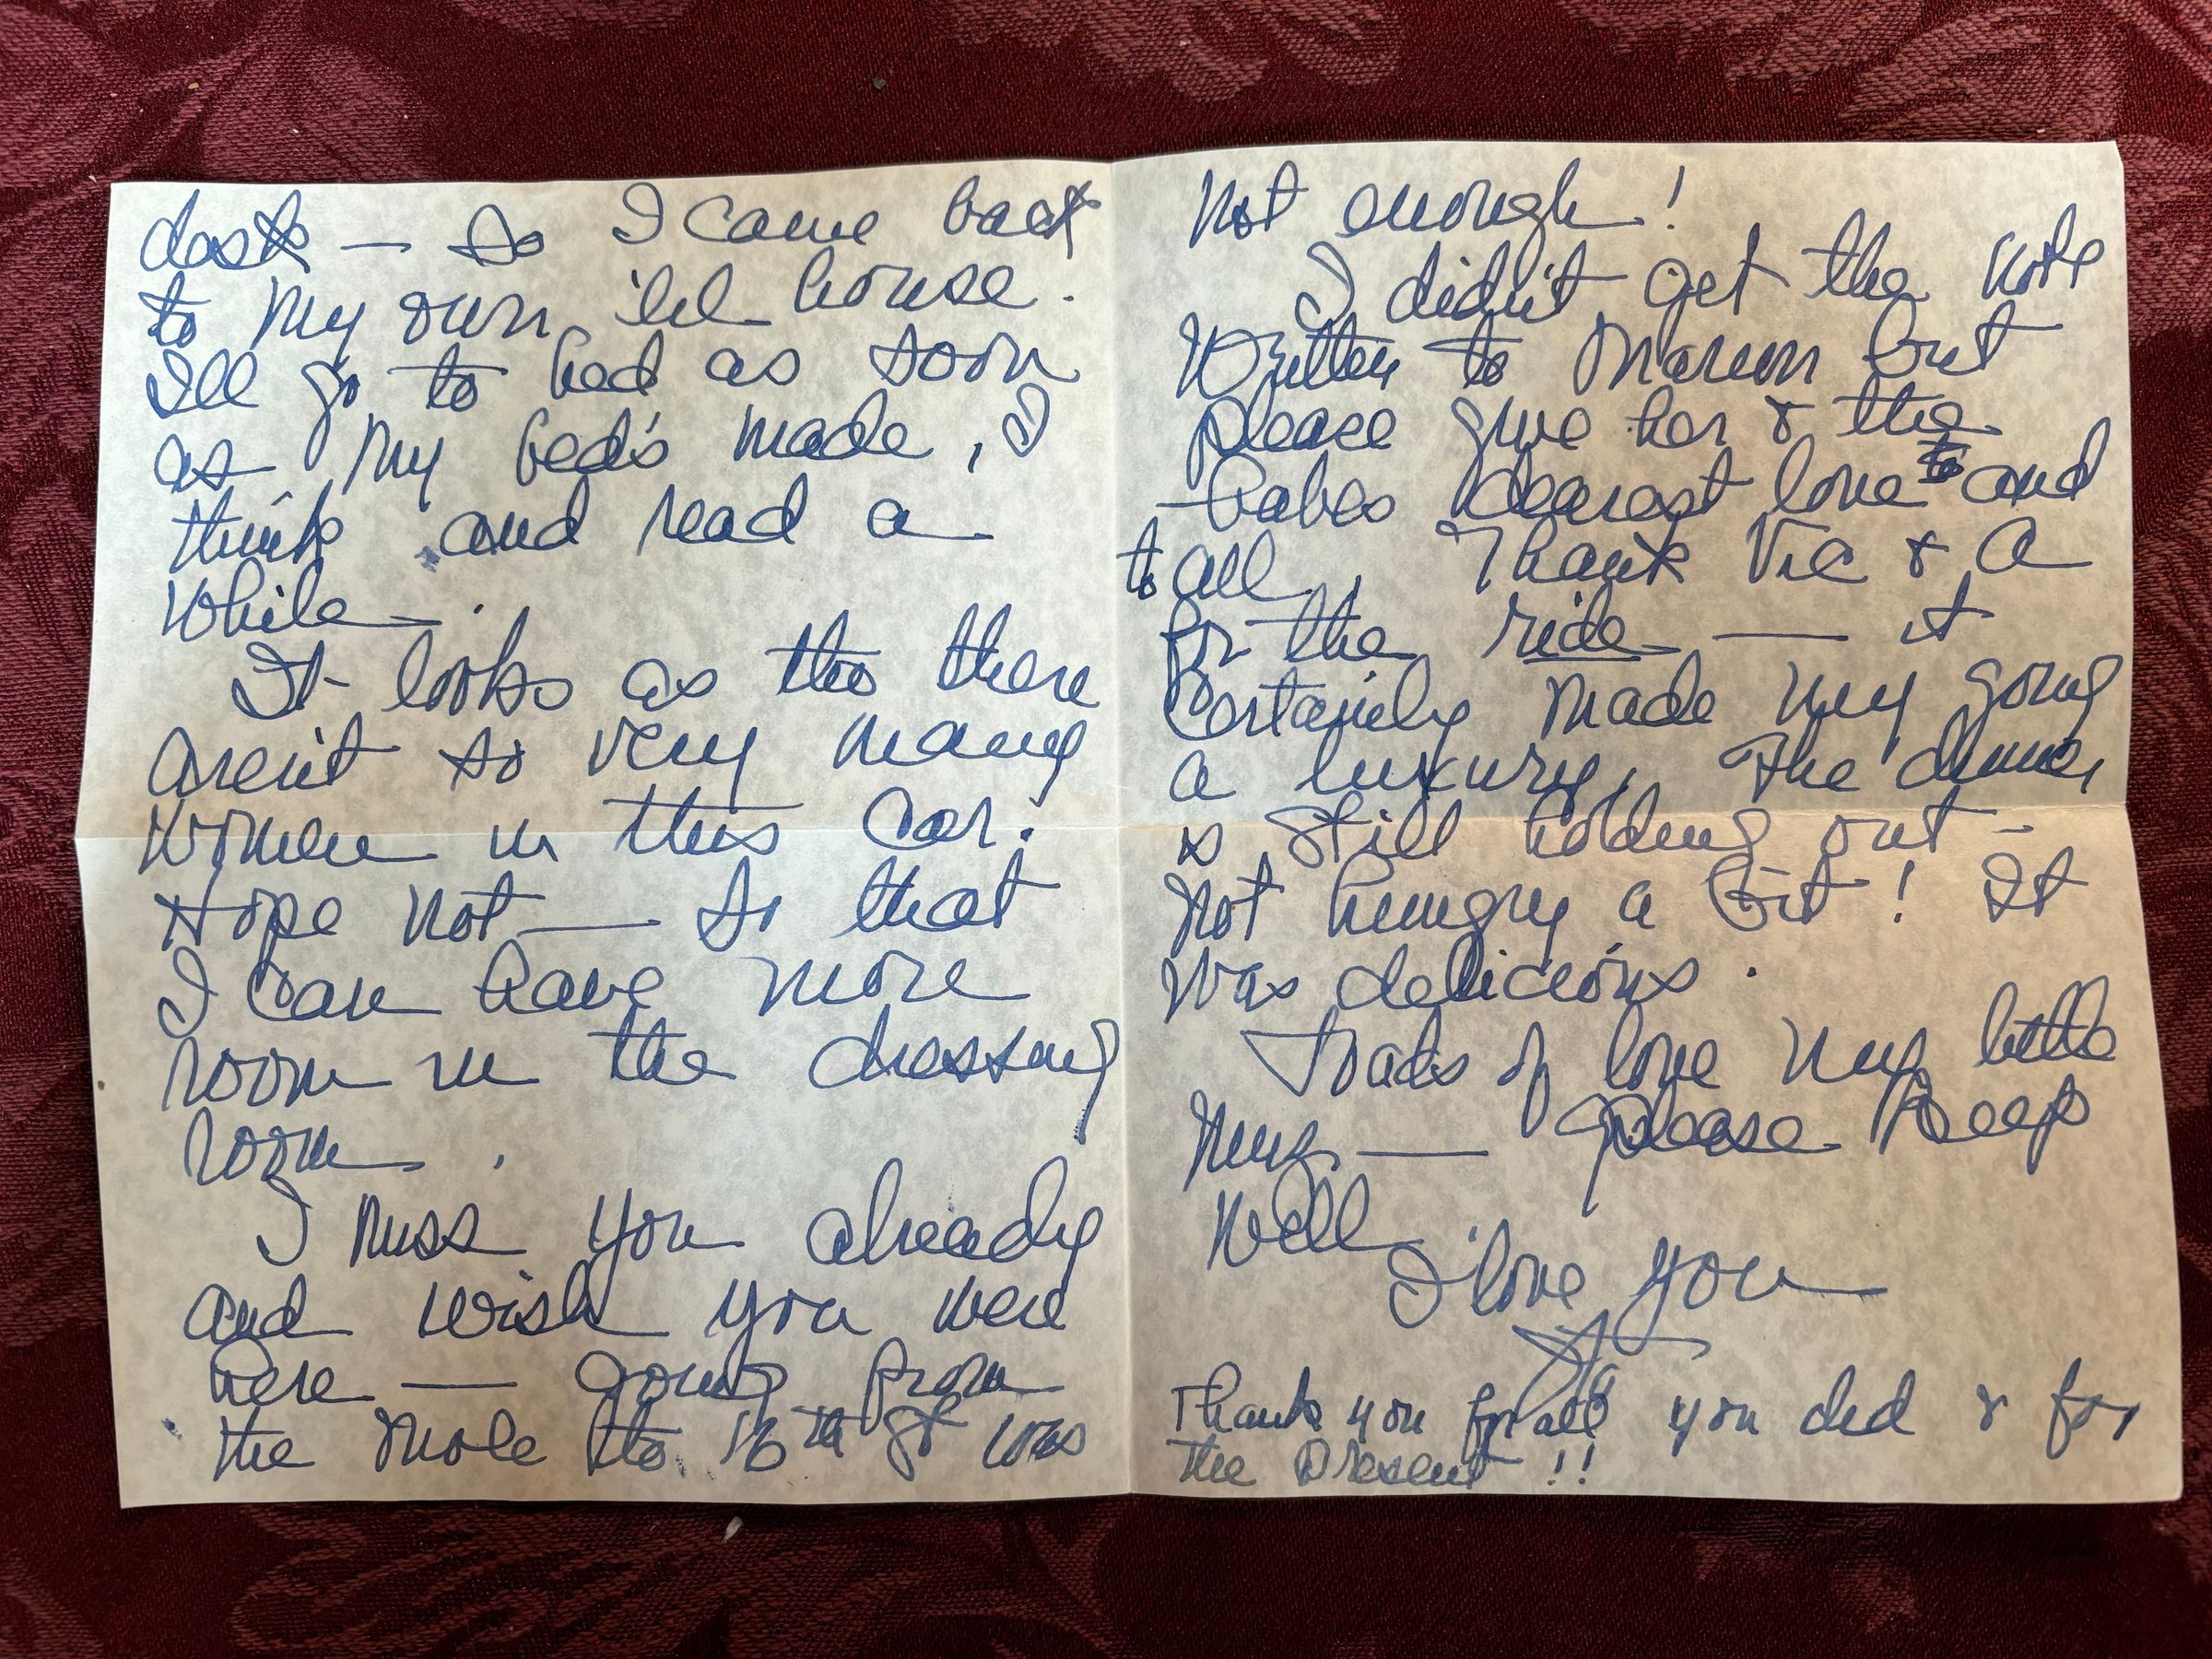 desk — so I came back
to my own 'lil house.
Ill go to bed as soon
as my bed's made, I
think and read a
while —.
It looks as tho there
aren't so very many
women in this car.
Hope not — so that
I can have more
room in the dressing
room.
I miss you already
and wish you were
here — going from
the mole to 16th St was
not enough!
I didn't get the note
written to Marion but
please give her & the
babes dearest love and
to all. Thank Vic & A
for the ride — it
certainly made my going
a luxury. The dinner
is still holding out –
not hungry a bit! It
was delicious.
Loads of love my little
— please keep
well.
I love you
Thank you for all you did & for
the present!!